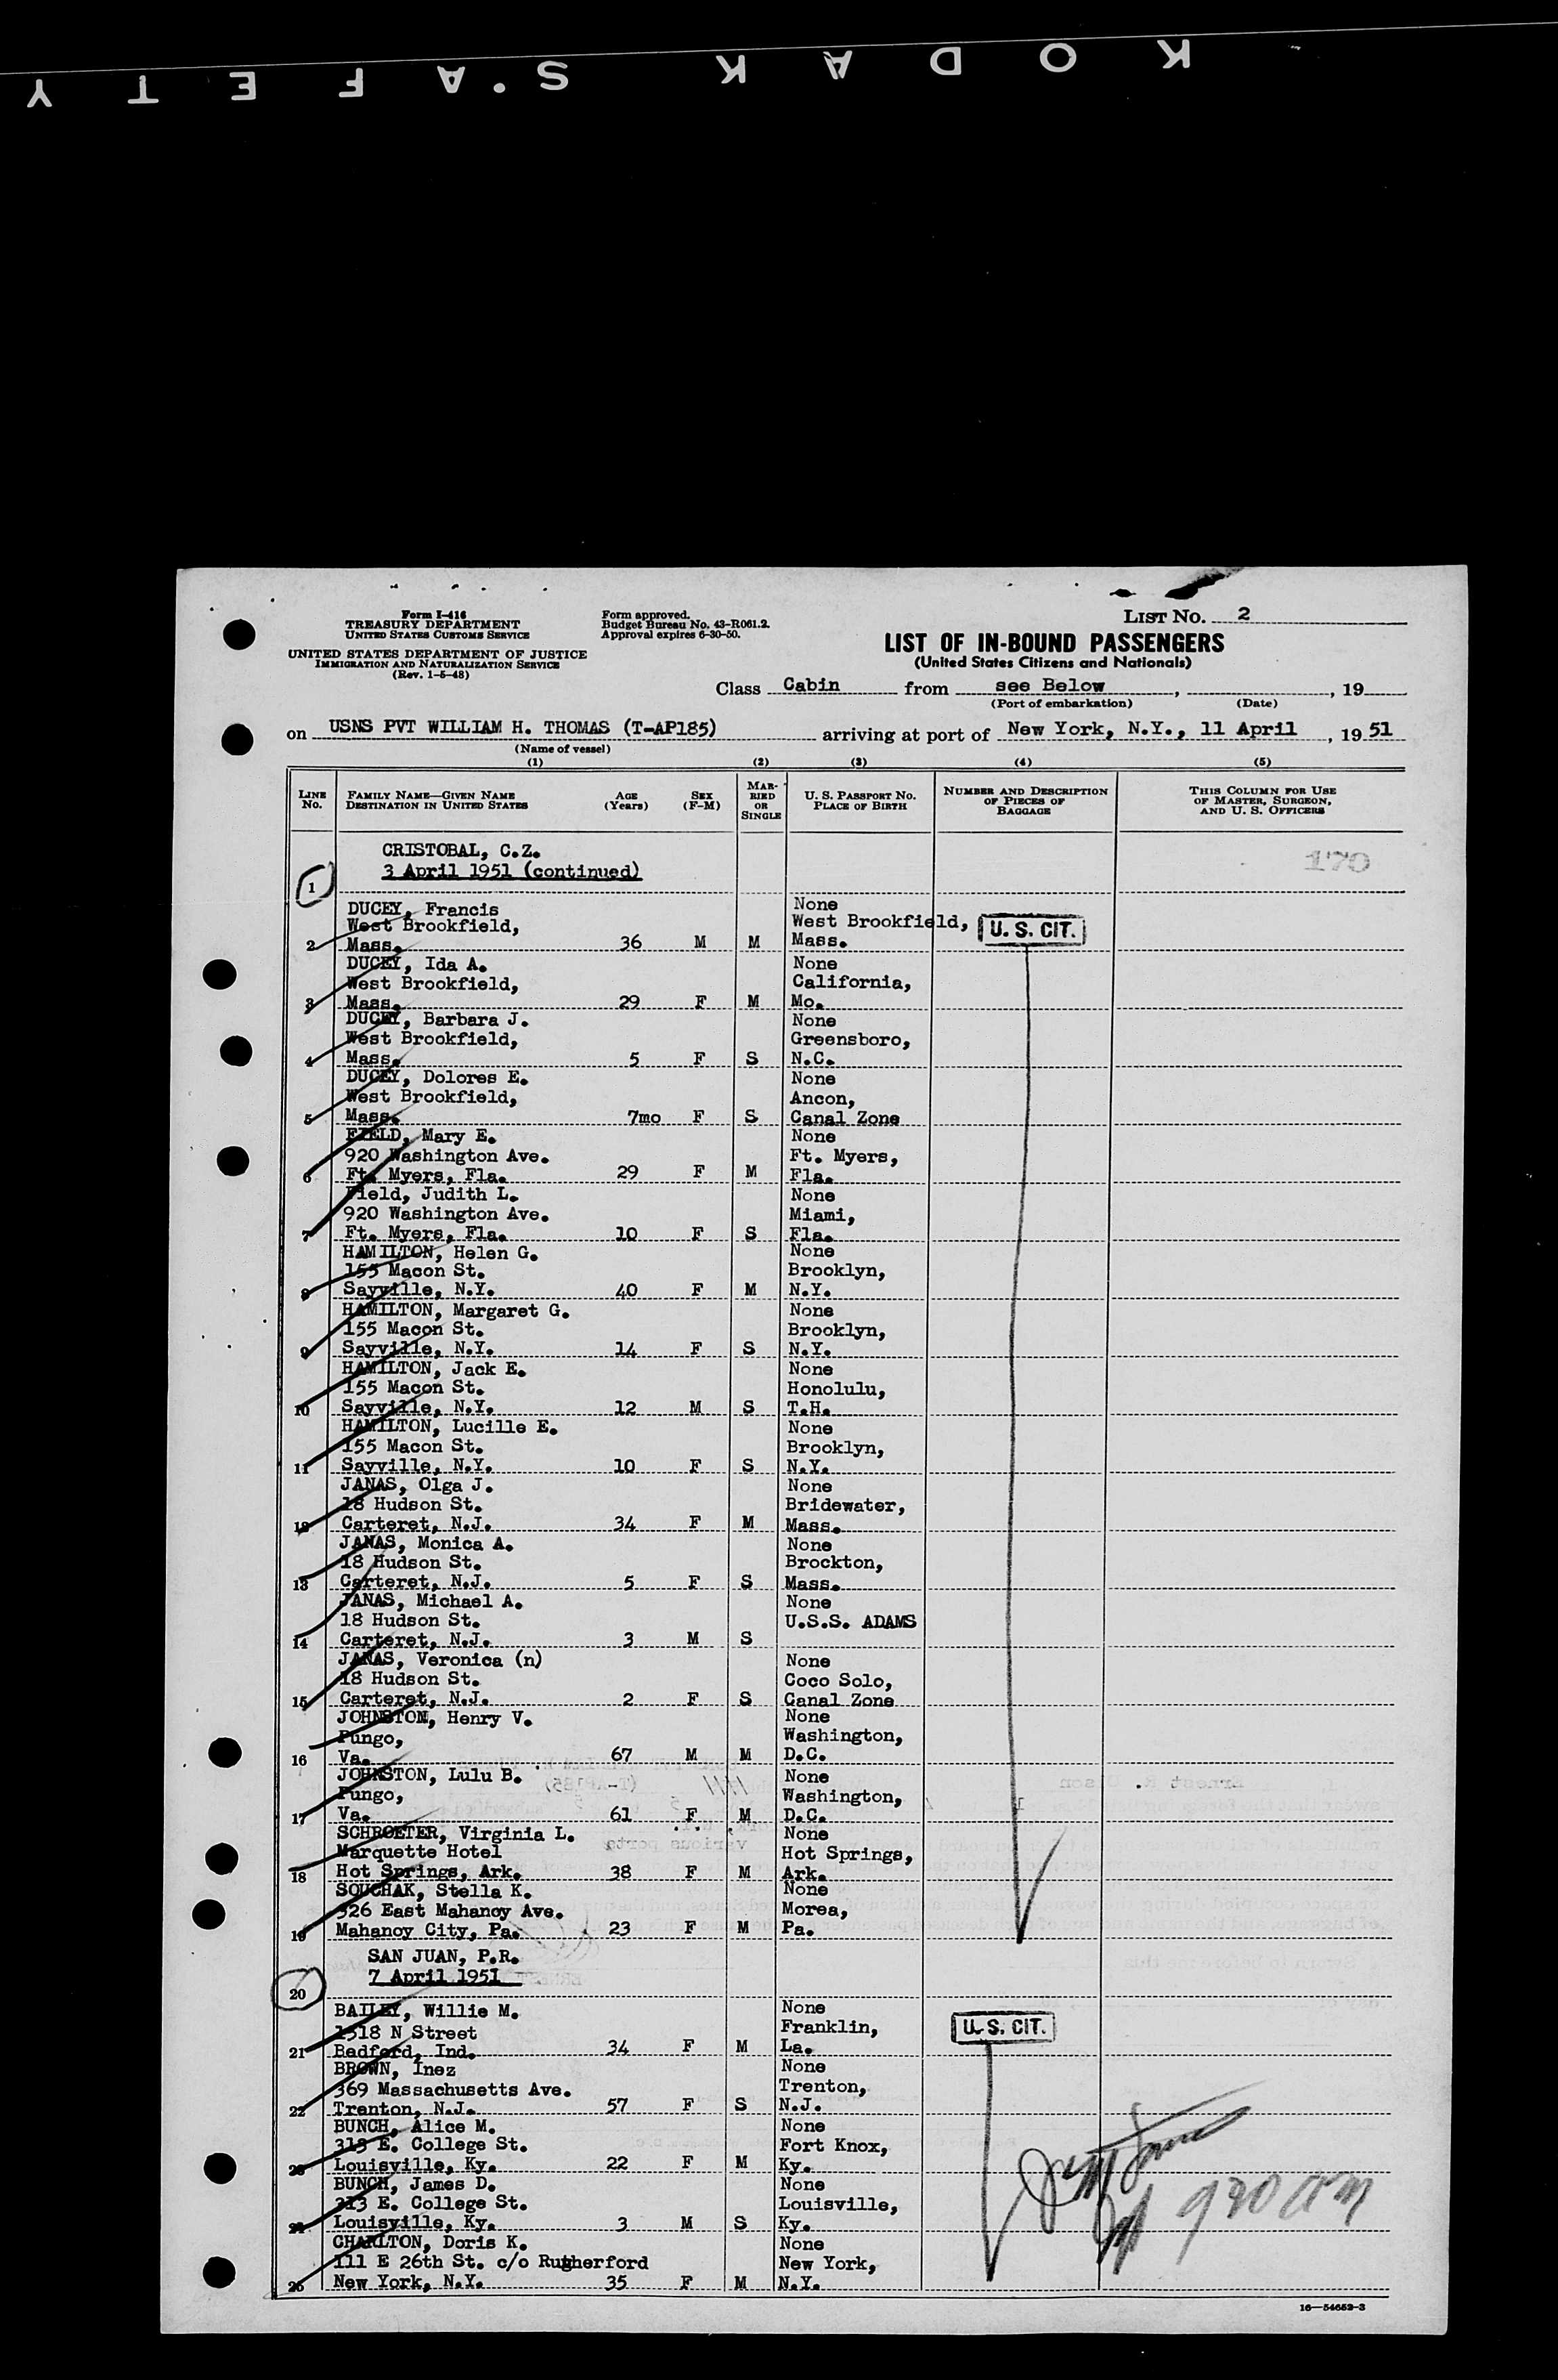 KODAK SAFETY
Form I-416
TREASURY DEPARTMENT
UNITED STATES CUSTOMS SERVICE
UNITED STATES DEPARTMENT OF JUSTICE
IMMIGRATION AND NATURALIZATION SERVICE
(Rev. 1-5-48)
Form approved.
Budget Bureau No. 43-R061.2.
Approval expires 6-30-50.
LIST NO. 2
LIST OF IN-BOUND PASSENGERS
(United States Citizens and Nationals)
Class Cabin from see Below, , 19
(Port of embarkation) (Date)
on USNS PVT WILLIAM H. THOMAS (T-AP185) arriving at port of New York, N.Y., 11 April, 1951
(Name of vessel)
(1) (2) (3) (4) (5)
LINE NO.
FAMILY NAME—GIVEN NAME
DESTINATION IN UNITED STATES
AGE (Years)
SEX (F-M)
MARRIED OR SINGLE
U. S. PASSPORT NO.
PLACE OF BIRTH
NUMBER AND DESCRIPTION OF PIECES OF BAGGAGE
THIS COLUMN FOR USE OF MASTER, SURGEON, AND U. S. OFFICERS
170
CRISTOBAL, C.Z.
1 3 April 1951 (continued)
DUCEY, Francis None
West Brookfield, West Brookfield, U. S. CIT.
2 Mass. 36 M M Mass.
DUCEY, Ida A. None
West Brookfield, California,
3 Mass. 29 F M Mo.
DUCEY, Barbara J. None
West Brookfield, Greensboro,
4 Mass. 5 F S N.C.
DUCEY, Dolores E. None
West Brookfield, Ancon,
5 Mass. 7mo F S Canal Zone
FIELD, Mary E. None
920 Washington Ave. Ft. Myers,
6 Ft. Myers, Fla. 29 F M Fla.
Field, Judith L. None
920 Washington Ave. Miami,
7 Ft. Myers, Fla. 10 F S Fla.
HAMILTON, Helen G. None
155 Macon St. Brooklyn,
8 Sayville, N.Y. 40 F M N.Y.
HAMILTON, Margaret G. None
155 Macon St. Brooklyn,
9 Sayville, N.Y. 14 F S N.Y.
HAMILTON, Jack E. None
155 Macon St. Honolulu,
10 Sayville, N.Y. 12 M S T.H.
HAMILTON, Lucille E. None
155 Macon St. Brooklyn,
11 Sayville, N.Y. 10 F S N.Y.
JANAS, Olga J. None
18 Hudson St. Bridewater,
12 Carteret, N.J. 34 F M Mass.
JANAS, Monica A. None
18 Hudson St. Brockton,
13 Carteret, N.J. 5 F S Mass.
JANAS, Michael A. None
18 Hudson St. U.S.S. ADAMS
14 Carteret, N.J. 3 M S
JANAS, Veronica (n) None
18 Hudson St. Coco Solo,
15 Carteret, N.J. 2 F S Canal Zone
JOHNSTON, Henry V. None
Pungo, Washington,
16 Va. 67 M M D.C.
JOHNSTON, Lulu B. None
Pungo, Washington,
17 Va. 61 F M D.C.
SCHROETER, Virginia L. None
Marquette Hotel Hot Springs,
18 Hot Springs, Ark. 38 F M Ark.
SOUCHAK, Stella K. None
326 East Mahanoy Ave. Morea,
19 Mahanoy City, Pa. 23 F M Pa.
SAN JUAN, P.R.
20 7 April 1951
BAILEY, Willie M. None
1318 N Street Franklin, U. S. CIT.
21 Bedford, Ind. 34 F M La.
BROWN, Inez None
369 Massachusetts Ave. Trenton,
22 Trenton, N.J. 57 F S N.J.
BUNCH, Alice M. None
313 E. College St. Fort Knox,
23 Louisville, Ky. 22 F M Ky.
BUNCH, James D. None
313 E. College St. Louisville,
24 Louisville, Ky. 3 M S Ky.
CHARLTON, Doris K. None
111 E 26th St. c/o Rutherford New York,
25 New York, N.Y. 35 F M N.Y.
930 AM
16—54652-3